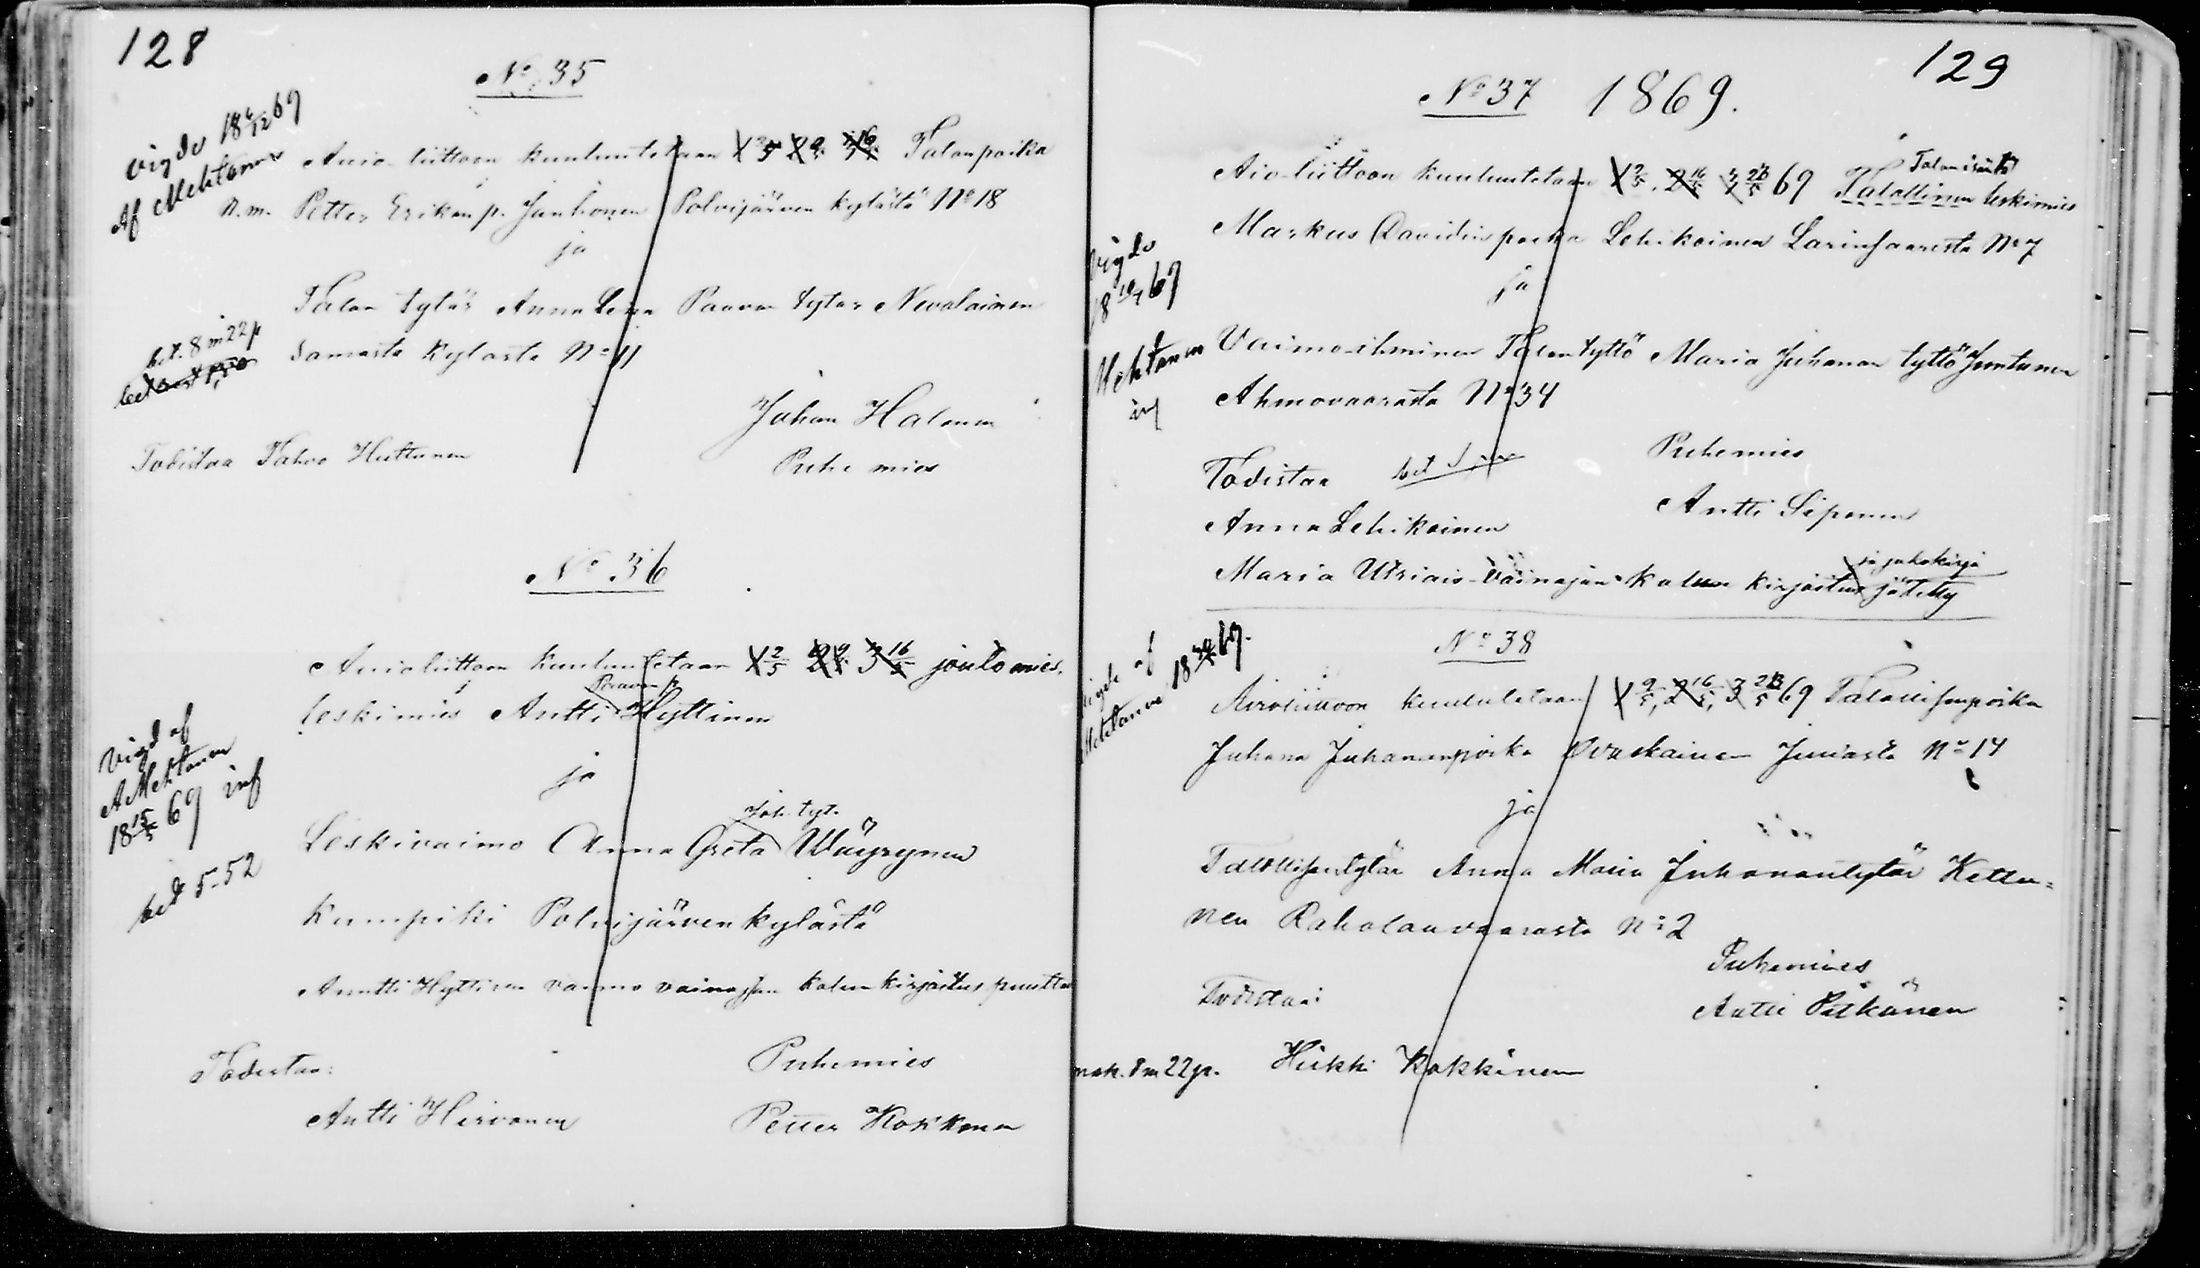 128
No 35
vigde 18 6/12 69
Af Mehtonen
Avio-liittoon kuulutetaan 1 2/5 2 9/5 3 16/5 Talonpoika
N.m. Petter Erikanp. Junhonen Polvijärven kylästä No 18
ja
Talon tytär Anna Lena Paavon tytär Nevalainen
bet. 8 m 22 p
samasta kylästä No 11
Johan Halonen
Todistaa Pahvo Huttunen
Puhe mies
No 36
Avioliittoon kuulutetaan 1 2/5 2 9/5 3 16/5 joutomies.
Paavon p.
leskimies Antti Hyttinen
vigd af
A Mehtonen
18 15/5 69 inf
ja
Joh. tyt.
Leskivaimo Anna Greta Wäyrynen
bet 5-52
Kumpiki Polvijärven kylästä
Anntti Hyttisen vaimo vainajan kalun kirjoitus puuttuu
Todistaa:
Puhemies
Antti Hirvonen
Petter Kokkonen
129
No 37 1869.
Talon isäntä
Aio-liittoon kuulutetaan 1 2/5. 2 16/5 3 23/5 69 Talollinen leskimies
Markus Davidinpoika Lehikoinen Larinsaaresta No 7
vigde
69
ja
Mehtonen
inf
Vaimo-ihminen Talontyttö Maria Juhanan tyttö Juntunen
Ahmovaarasta No 34
Todistaa bet
Puhemies
Anna Lehikoinen
Antti Siponen
ja jakokirja
Maria Utriais-vainajan kalun kirjoitus jätetty
No 38
vigde af
Mehtonen 18 69.
Avioliittoon kuulutetaan 1 9/5, 2 16/5, 3 23/5 69 Talollisenpoika
Juhana Juhananpoika Ovaskainen Juuasta No 14
ja
Talollisentytär Anna Maria Juhanantytär Kettu-
nen Raholanvaarasta No 2
Puhemies
Todistaa:
Antti Pitkänen
mak. 8 m 22 p. Heikki Kokkinen